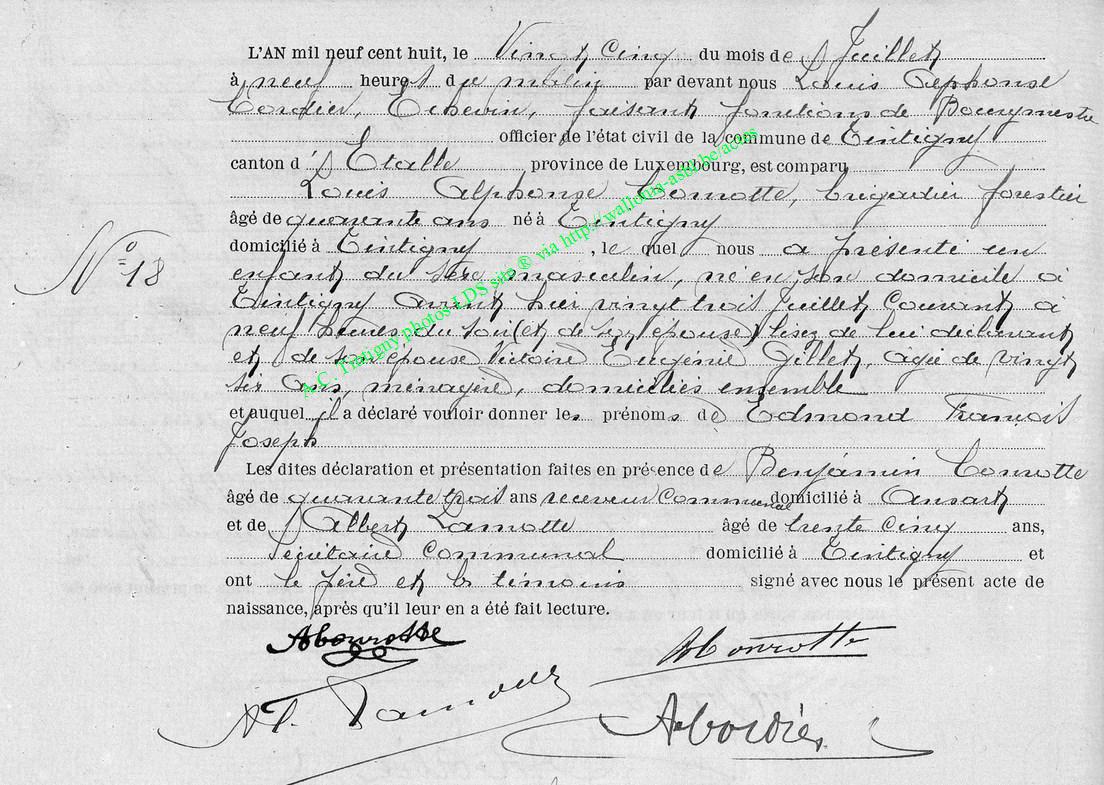 L'AN mil neuf cent huit, le Vingt Cinq du mois de Juillet
à neuf heures du matin par devant nous Louis Alphonse
Cordier, Echevin, faisant fonctions de Bourgmestre
officier de l'état civil de la commune de Tintigny
canton d'Etalle province de Luxembourg, est comparu
Louis Alphonse brigadier forestier
âgé de quarante ans né à Tintigny
domicilié à Tintigny, le quel nous a présenté un
N° 18
enfant du sexe masculin, né en son domicile à
Tintigny avant hier vingt trois Juillet Courant à
neuf heures du soir (et de épouse) lisez de lui déclarant
et de son épouse Victoire Eugénie Gillet, agée de vingt
six ans, ménagère, domiciliés ensemble
et auquel il a déclaré vouloir donner les prénoms de Edmond François
Joseph
Les dites déclaration et présentation faites en présence de Benjamin Conrotte
âgé de quarante trois ans receveur Communal domicilié à Ansart
et de Albert Lamotte âgé de trente Cinq ans,
Secrétaire Communal domicilié à Tintigny et
ont le père et les témoins signé avec nous le présent acte de
naissance, après qu'il leur en a été fait lecture.
A.C. Tintigny photos LDS site ® via http://wallonia-asbl.be/actes